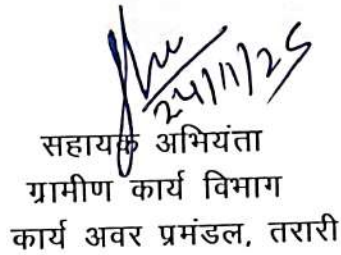 24/11/25
सहायक अभियंता
ग्रामीण कार्य विभाग
कार्य अवर प्रमंडल, तरारी